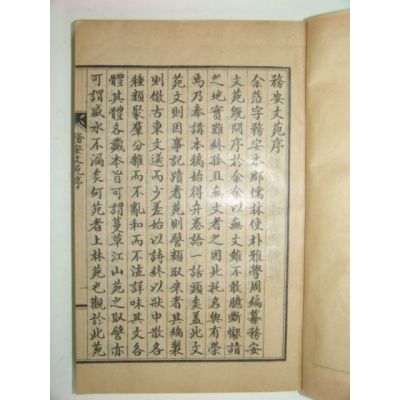 務安文苑序
余莅守務安本郡儒林使朴雅學周編纂務安
文苑既問序於余余以無文雖不敢膽斷懇請
之地實難終孤且無文者之因此托名與有榮
焉乃奉講本稿始得弁卷語一話頭矣盖此文
苑文則因事記蹟者苑則譬類取來者其編製
則倣古東文選而少差始以詩終以狀中散各
種類聚羣分雜而不亂和而不流詳味其文各
體其體各藏本旨可謂蔓草江山苑之取譬亦
可謂盛水不漏矣何苑者上林苑也觀於此苑
務安文苑序
一